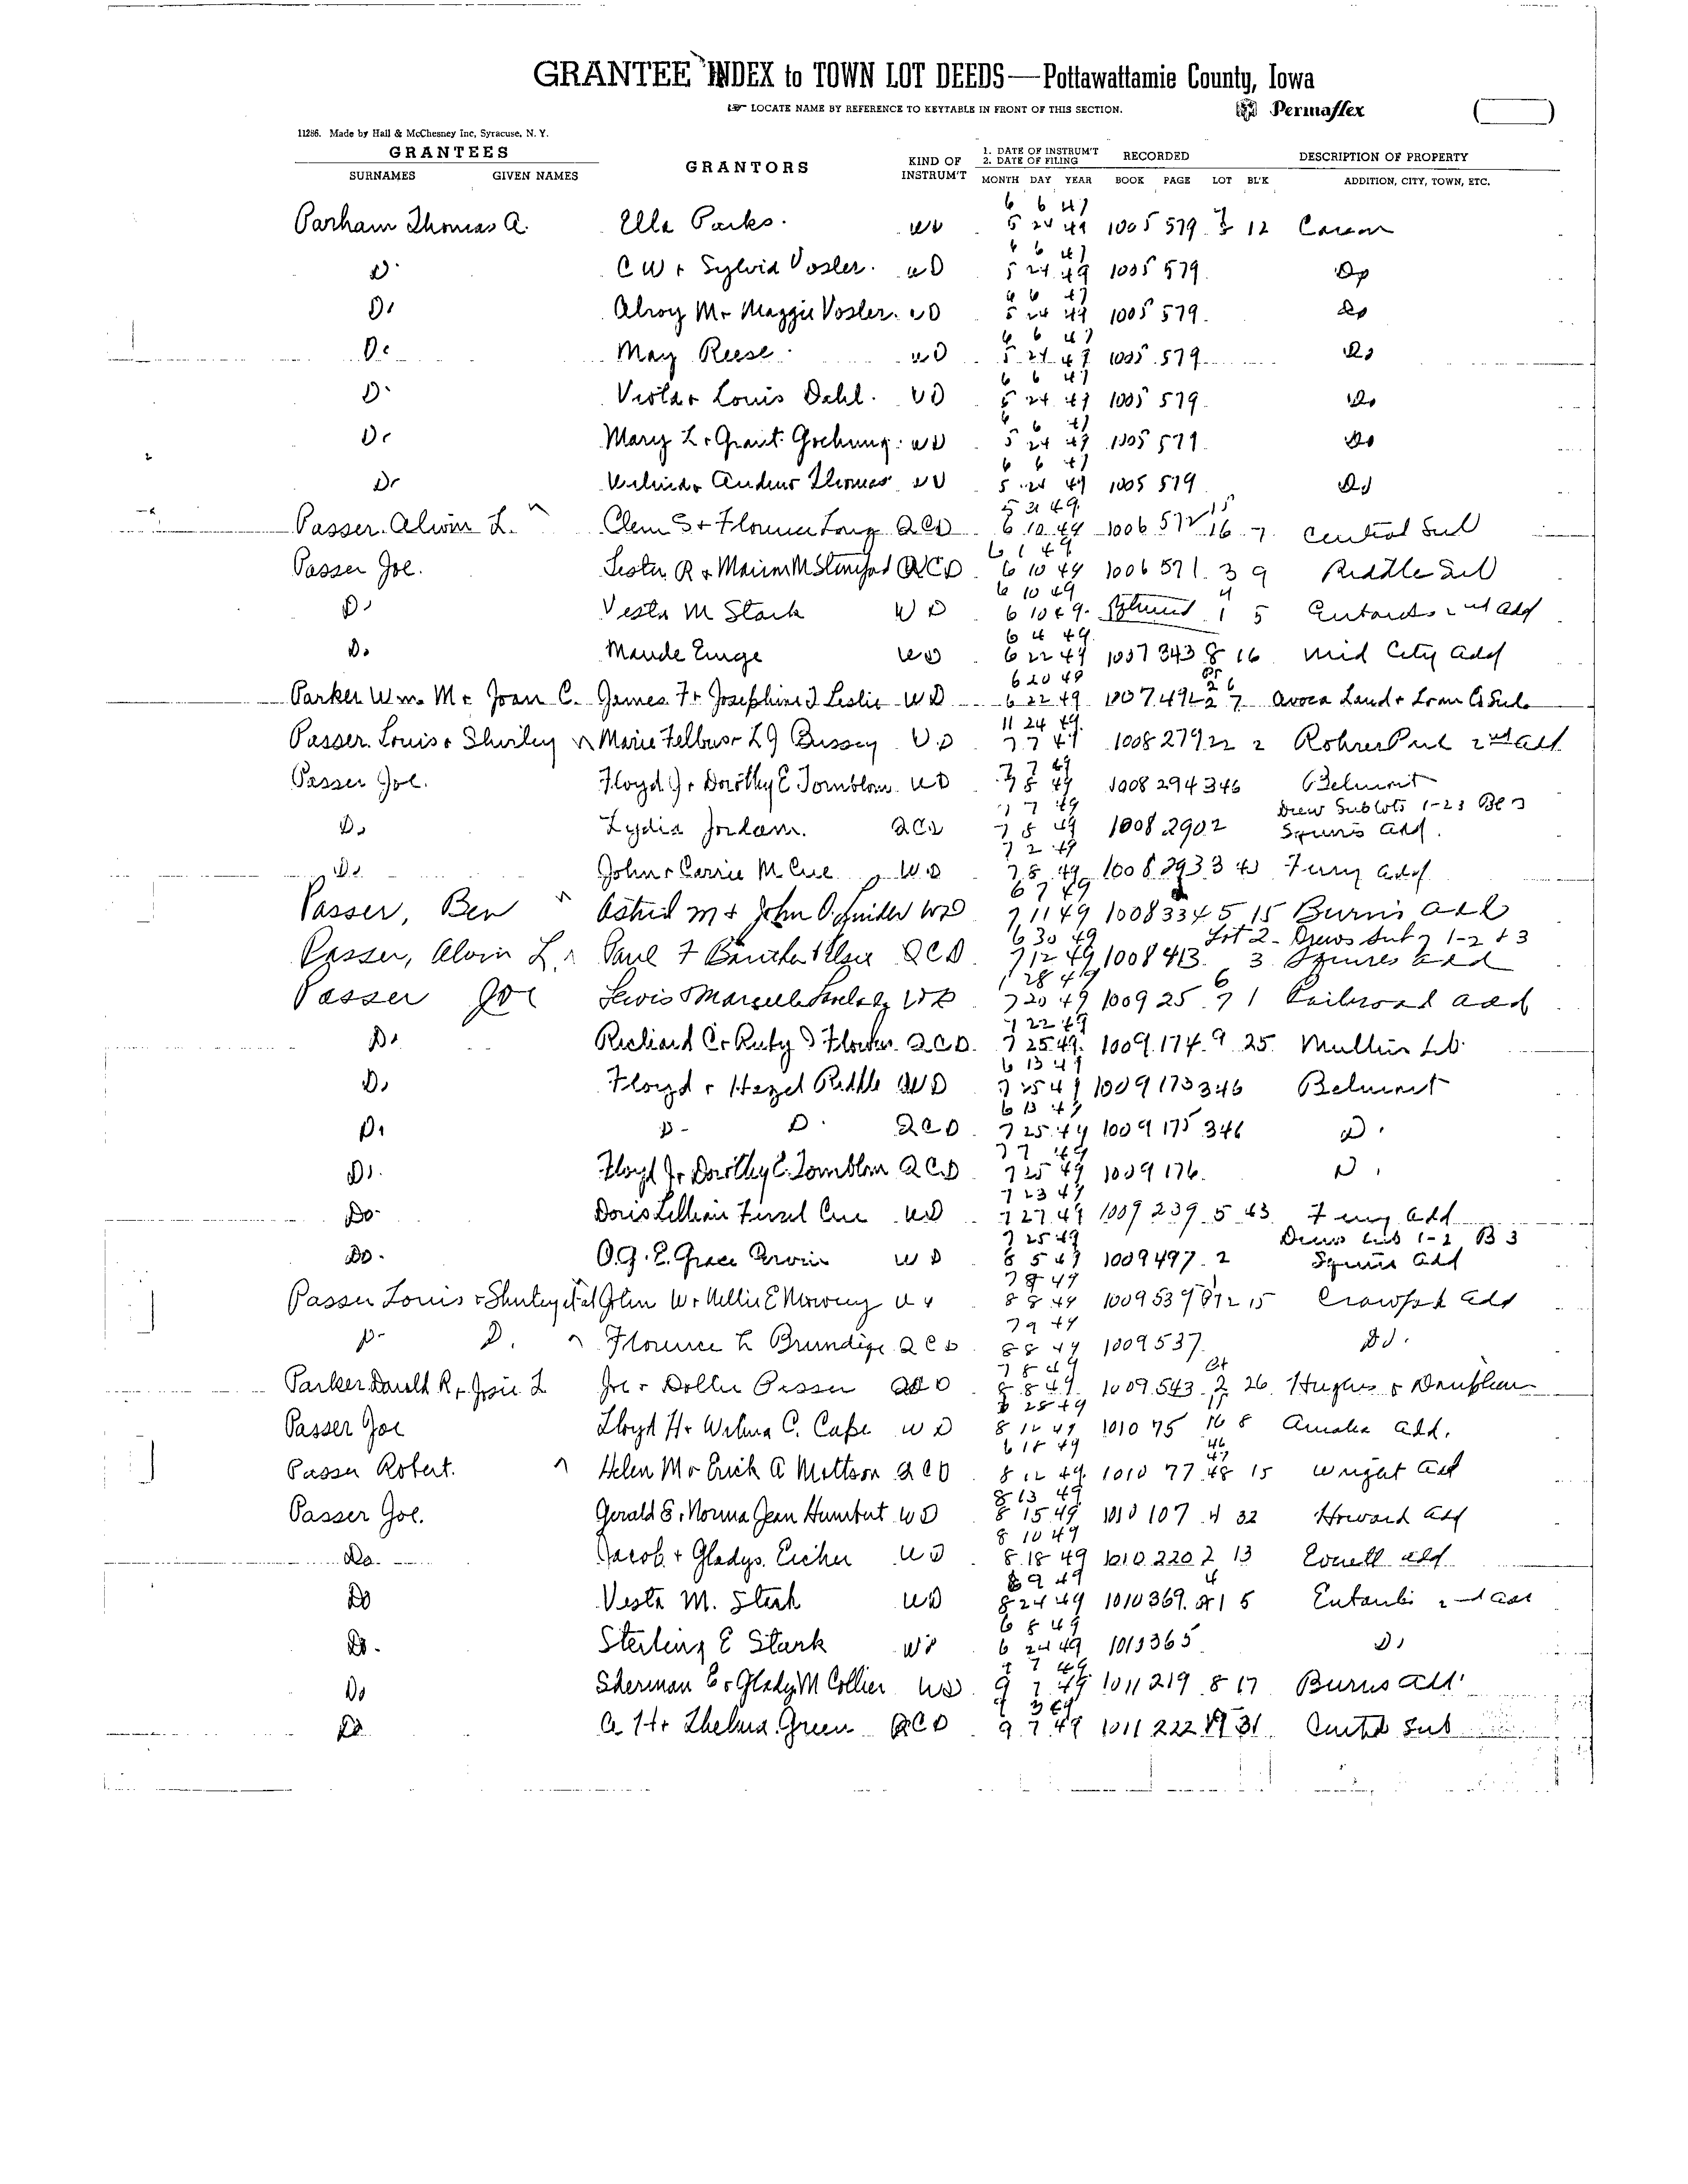 GRANTEE INDEX to TOWN LOT DEEDS—Pottawattamie County, Iowa
☞ LOCATE NAME BY REFERENCE TO KEYTABLE IN FRONT OF THIS SECTION. Permaflex
11286. Made by Hall & McChesney Inc, Syracuse, N. Y.
GRANTEES GRANTORS KIND OF INSTRUM'T 1. DATE OF INSTRUM'T 2. DATE OF FILING RECORDED DESCRIPTION OF PROPERTY
SURNAMES GIVEN NAMES MONTH DAY YEAR BOOK PAGE LOT BL'K ADDITION, CITY, TOWN, ETC.
6 6 47
Parham Thomas A. Ella Parks. WD 5 24 49 1005 579 12 Carson
6 6 47
Do C W + Sylvia Vosler. WD 5 24 49 1005 579 Do
6 6 47
Do Alroy M + Maggie Vosler. WD 5 24 49 1005 579 Do
6 6 47
Do May Reese WD 5 24 49 1005 579 Do
6 6 47
Do Viola + Louis Dahl. WD 5 24 49 1005 579 Do
6 6 47
Do Mary L + Grant WD 5 24 49 1005 579 Do
6 6 47
Do Thomas WD 5 24 49 1005 579 Do
5 31 49 15
Passer Alvin L. Clem S + Florence Long QCD 6 10 49 1006 572 16 7 Central Sub
6 1 49
Passer Joe. Lester R + Marion M QCD 6 10 49 1006 571 3 9 Riddle Sub
6 10 49 4
Do Vesta M Stark WD 6 10 49 1 5 2nd Add
6 4 49
Do Maude Emge WD 6 22 49 1007 343 8 16 Mid City Add
6 20 49
Parker Wm. M + Joan C. James F + Josephine J Leslie WD 6 22 49 1007 492 2 7 Avoca Land + Loan Co Sub
11 24 49
Passer Louis + Shirley Marie + L J Bussey WD 7 7 49 1008 279 22 2 Rohrer Park 2nd Add
7 7 49
Passer Joe. Floyd J + Dorothy E Tornblom WD 7 8 49 1008 294 346 Belmont
7 7 49 Drew Sub Lots 1-23 Bl 3
Do Lydia Jordan. QCD 7 8 49 1008 290 2 Squires Add.
7 2 49
Do John + Carrie M Cue WD 7 8 49 1008 293 3 43 Ferry Add
6 7 49
Passer, Ben Astrid M + John O. Snider WD 7 11 49 1008 334 5 15 Burns Add
6 30 49 Lot 2 - Drews Sub 1-2 + 3
Passer, Alvin L. Paul F QCD 7 12 49 1008 413 3 Squires Add
1 28 49 6
Passer Joe Lewis WD 7 20 49 1009 25 7 1 Railroad Add
7 22 49
Do Richard C + Ruby QCD 7 25 49 1009 174 9 25 Mullin Sub
6 13 49
Do Floyd + Hazel Riddle WD 7 25 49 1009 173 346 Belmont
6 13 49
Do Do Do QCD 7 25 49 1009 175 346 Do
7 7 49
Do Floyd J + Dorothy E. Tornblom QCD 7 25 49 1009 176 Do
7 23 49
Do Doris Lillian Cue WD 7 27 49 1009 239 5 43 Ferry Add
7 25 49 Drews Sub 1-2 B 3
Do O. G. + E. Grace WD 8 5 49 1009 497 2 Squires Add
7 8 49
Passer Louis + Shirley et al John W + Nellie E WD 8 8 49 1009 539 15 Add
7 9 49
Do Do Florence L Brundige QCD 8 8 49 1009 537 Do
7 8 49
Parker Donald R + Josie L Joe + Dollie Passer QCD 8 8 49 1009 543 2 26 Hughes + Doniphan
28 49 15
Passer Joe Lloyd H + Wilma C. Cape WD 8 12 49 1010 75 16 8 Omaha Add.
6 18 49 46 47
Passer Robert. Helen M + Erick A Mattson QCD 8 12 49 1010 77 48 15 Wright Add
8 13 49
Passer Joe. Gerald E + Norma Jean Humbert WD 8 15 49 1010 107 4 32 Howard Add
8 10 49
Do Jacob + Gladys Eicher WD 8 18 49 1010 220 2 13 Everett Add
8 9 49 4
Do Vesta M. Stark WD 8 24 49 1010 369 1 5 2nd Add
6 8 49
Do Sterling E Stark WD 6 24 49 1010 365 Do
9 7 49
Do Sherman E + Gladys M Collier WD 9 7 49 1011 219 8 17 Burns Add
9 3 49
Do A H + Thelma Green QCD 9 7 49 1011 222 19 31 Central Sub